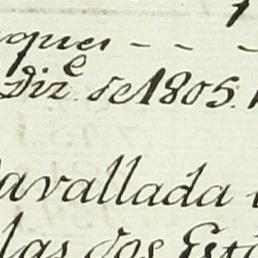 ques - - -
Diz.e de 1805.
avallada
las dos Est